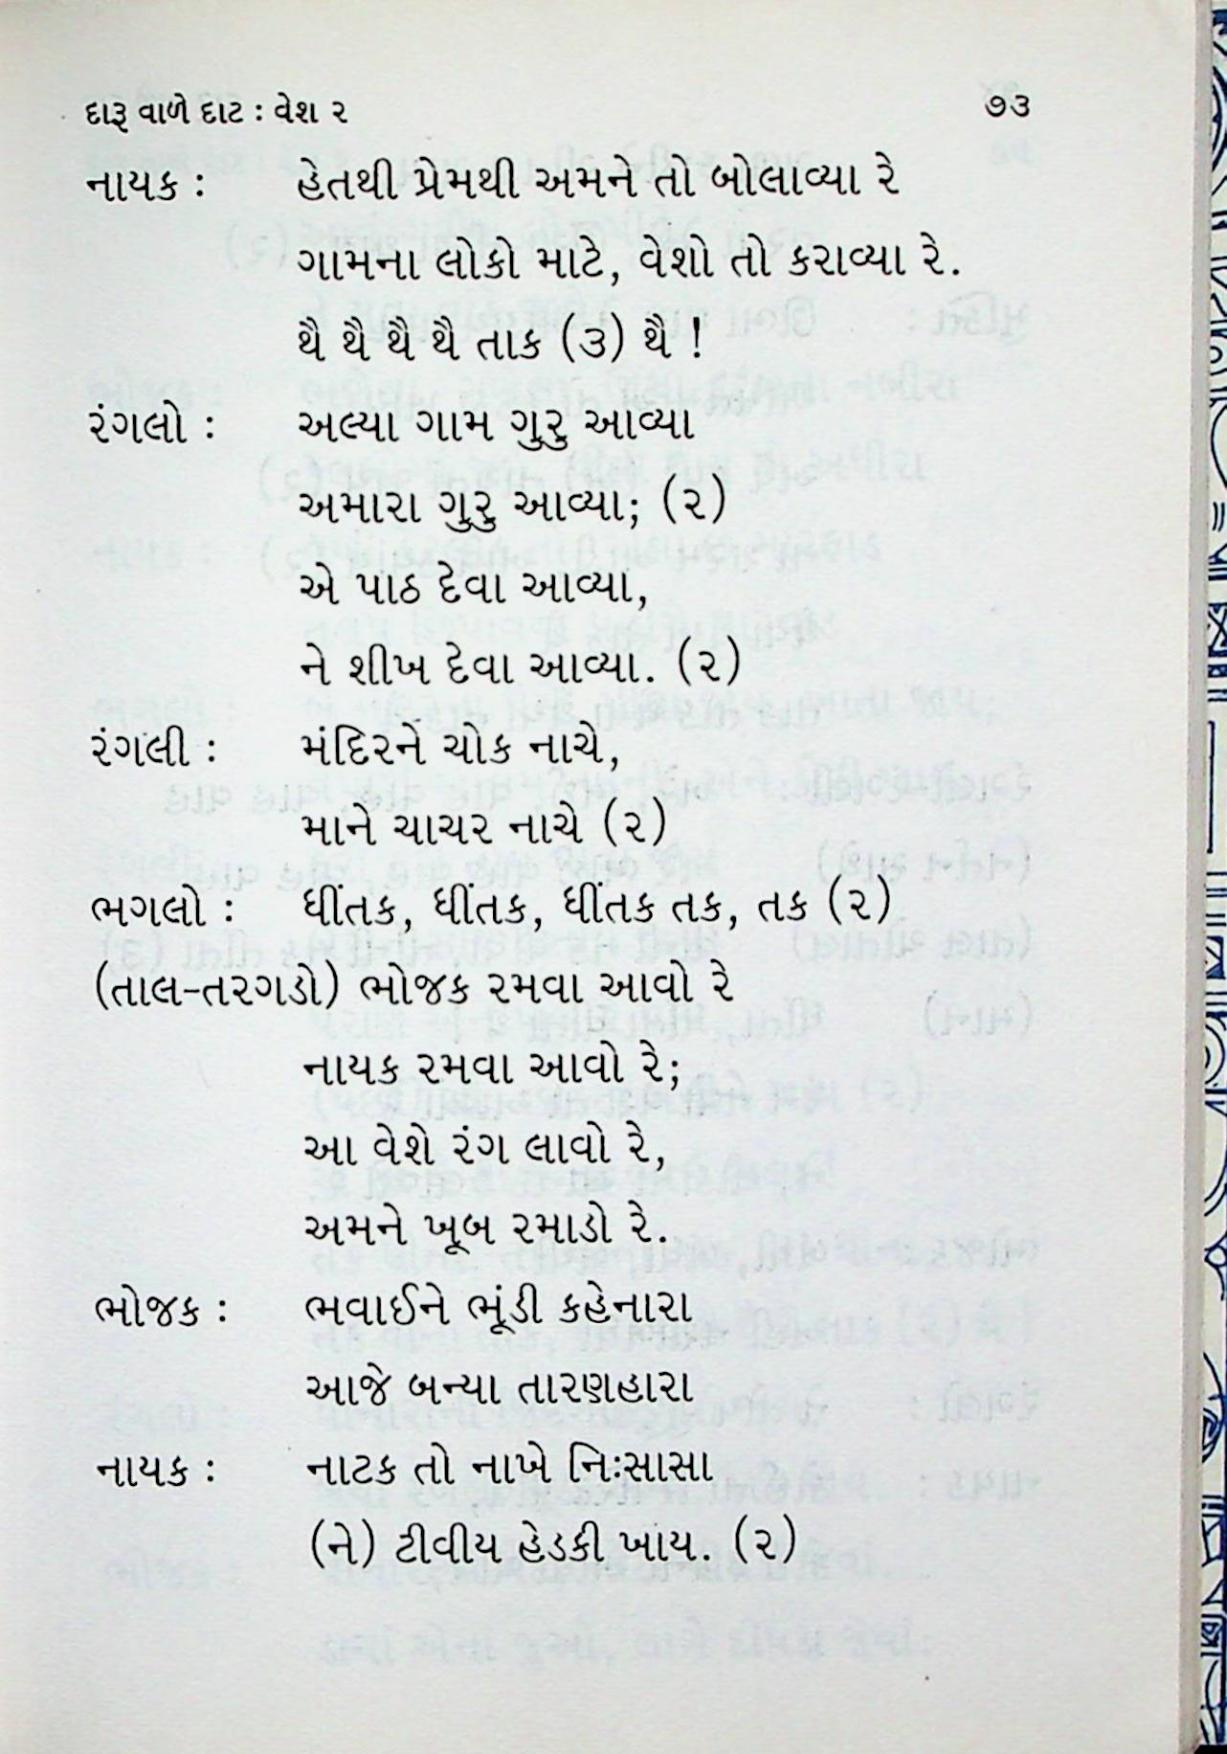 દારૂ વાળે દાટ : વેશ ૨ ૭૩
નાયક : હેતથી પ્રેમથી અમને તો બોલાવ્યા રે
ગામના લોકો માટે, વેશો તો કરાવ્યા રે.
થૈ થૈ થૈ થૈ તાક (૩) થૈ !
રંગલો : અલ્યા ગામ ગુરુ આવ્યા
અમારા ગુરુ આવ્યા; (૨)
એ પાઠ દેવા આવ્યા,
ને શીખ દેવા આવ્યા. (૨)
રંગલી : મંદિરને ચોક નાચે,
માને ચાચર નાચે (૨)
ભગલો : ધીંતક, ધીંતક, ધીંતક તક, તક (૨)
(તાલ-તરગડો) ભોજક રમવા આવો રે
નાયક રમવા આવો રે;
આ વેશે રંગ લાવો રે,
અમને ખૂબ રમાડો રે.
ભોજક : ભવાઈને ભૂંડી કહેનારા
આજે બન્યા તારણહારા
નાયક : નાટક તો નાખે નિઃસાસા
(ને) ટીવીય હેડકી ખાય. (૨)